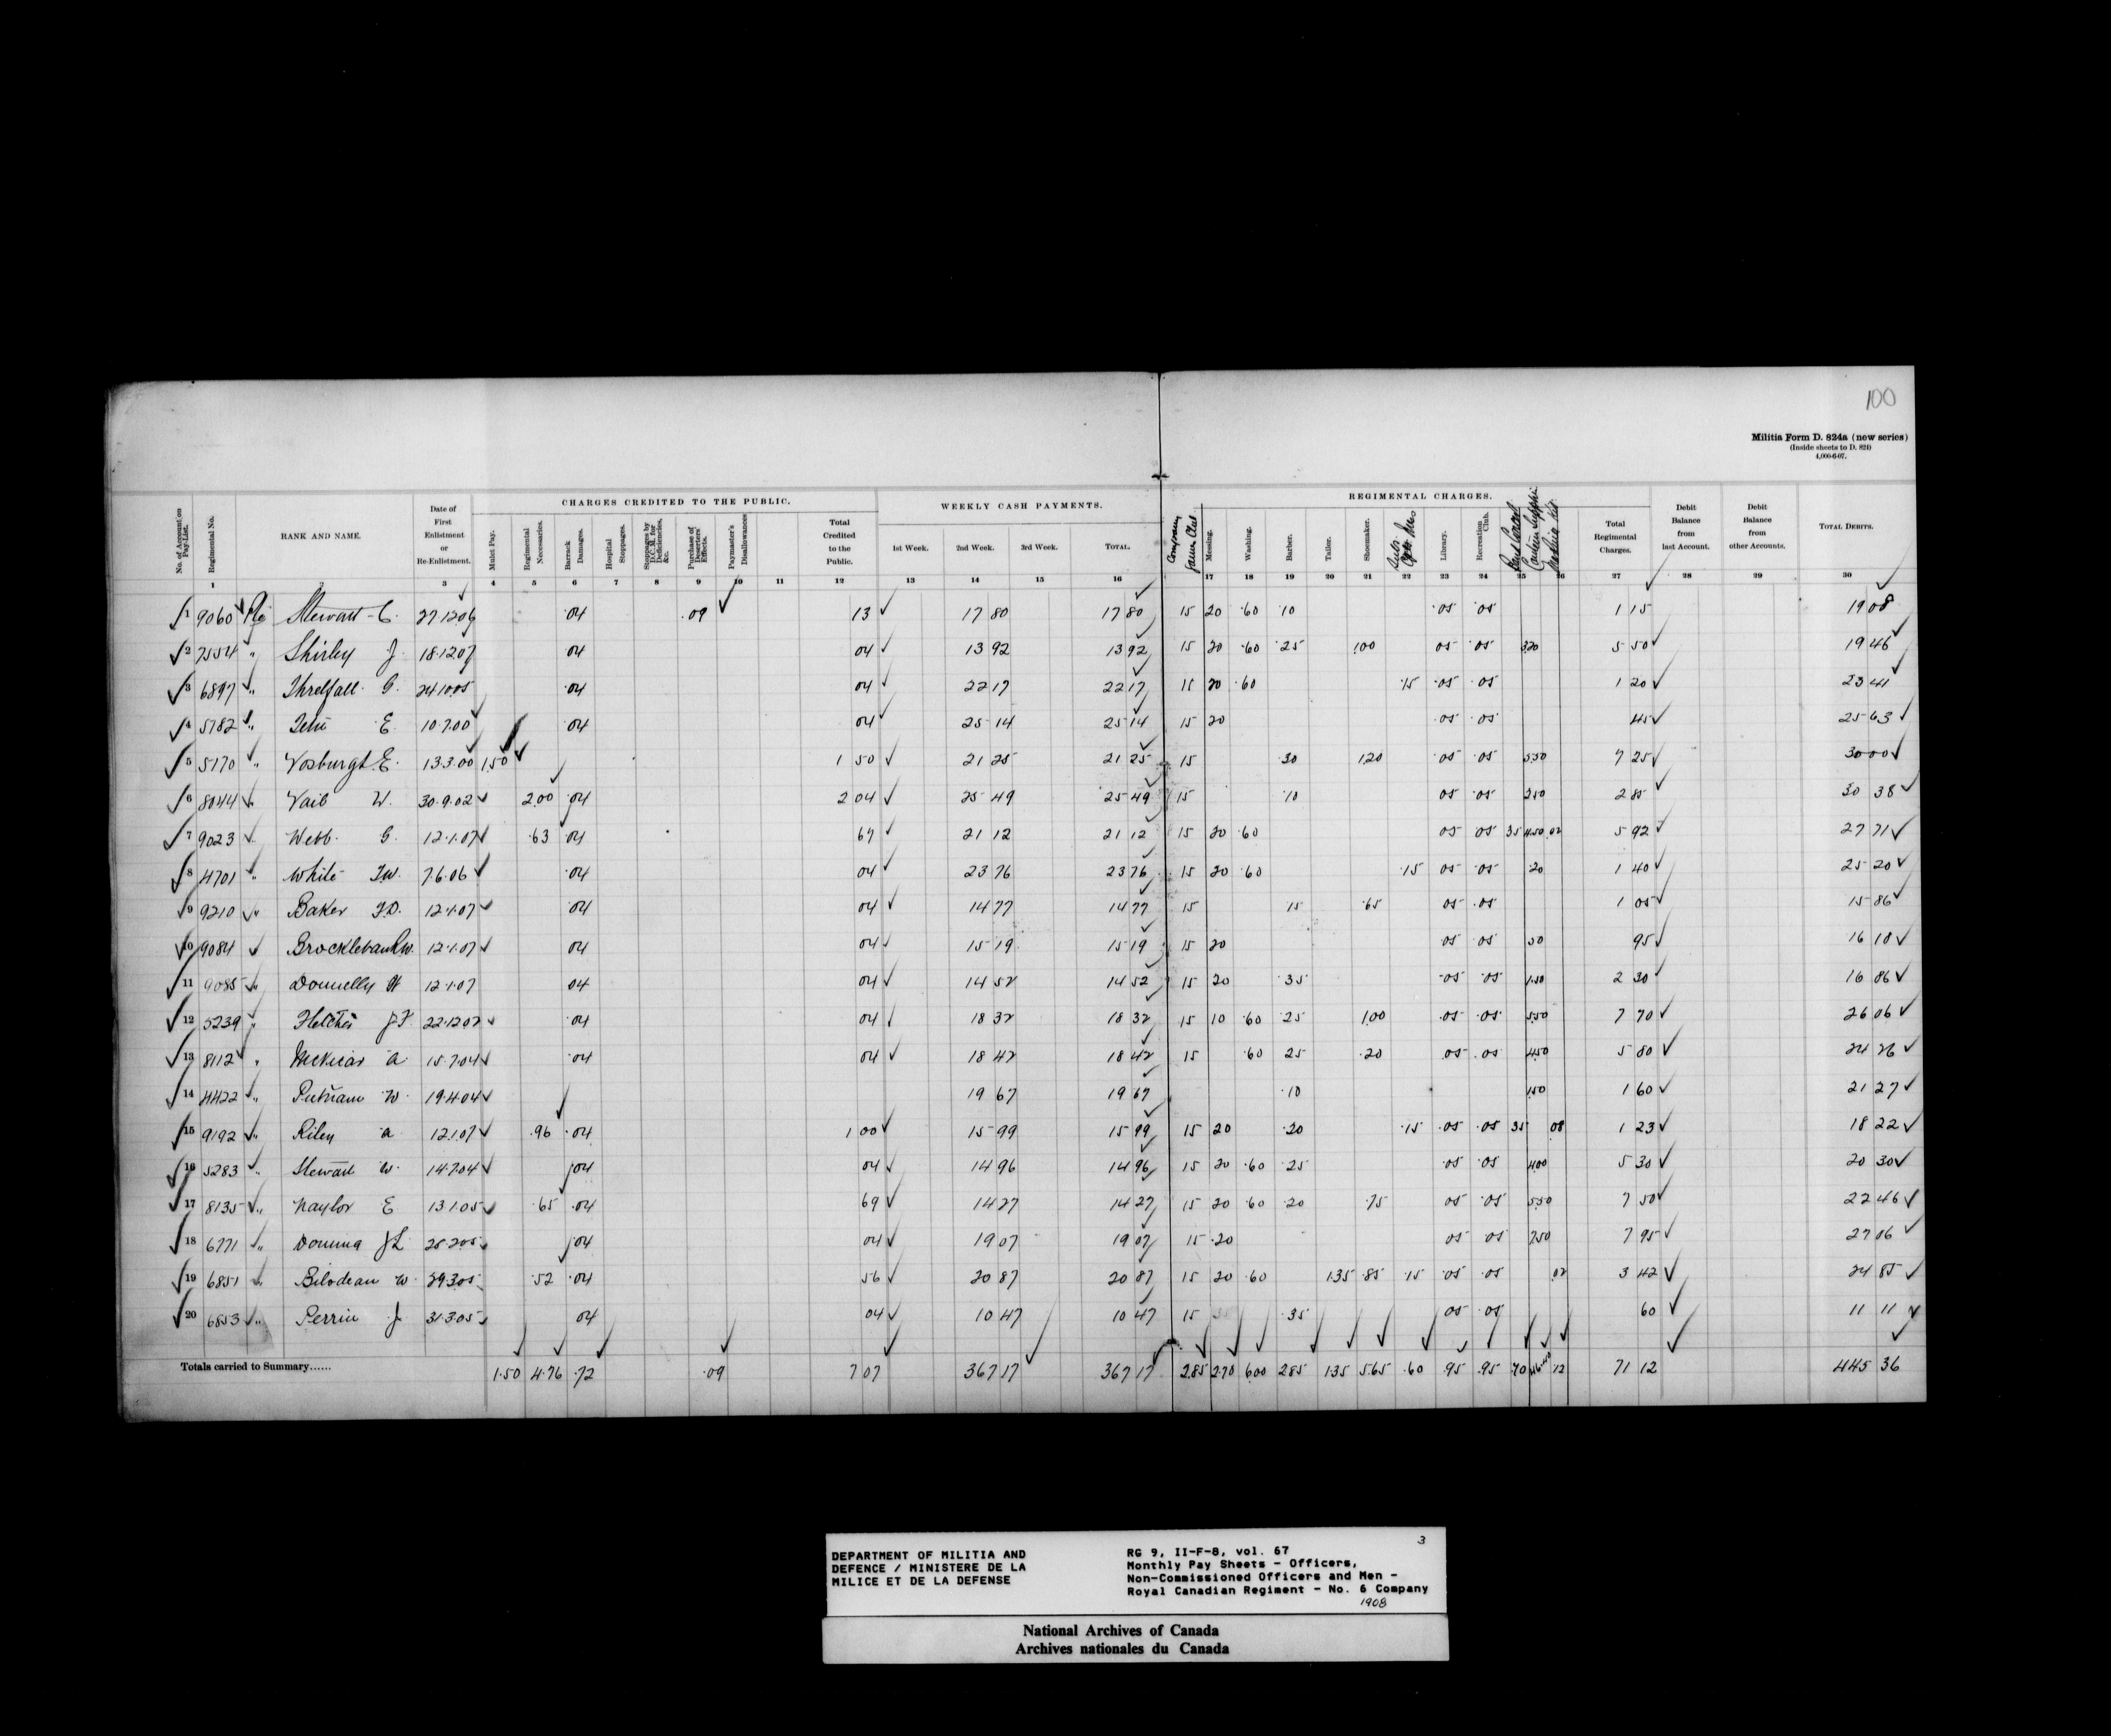 100
Militia Form D. 824a (new series)
(Inside sheets to D. 824)
4,000-6-07.
CHARGES CREDITED TO THE PUBLIC.
WEEKLY CASH PAYMENTS.
REGIMENTAL CHARGES.
No. of Account on Pay-List. Regimental No. RANK AND NAME. Date of First Enlistment or Re-Enlistment. Mulct Pay. Regimental Necessaries. Barrack Damages. Hospital Stoppages. Stoppages by D.C.M. for Deficiencies, &c. Purchase of Deserters' Effects. Paymaster's Disallowances Total Credited to the Public. 1st Week. 2nd Week. 3rd Week. TOTAL. Company Games Club Messing. Washing. Barber. Tailor. Shoemaker. Library. Recreation Club. Total Regimental Charges. Debit Balance from last Account. Debit Balance from other Accounts. TOTAL DEBITS.
1 2 3 4 5 6 7 8 9 10 11 12 13 14 15 16 17 18 19 20 21 22 23 24 25 26 27 28 29 30
1 9060 Pte Stewart C. 27.12.06 .04 .09 13 17 80 17 80 15 20 .60 .10 .05 .05 1 15 19 08
2 7554 " Shirley J. 18.12.07 .04 04 13 92 13 92 15 20 .60 .25 1.00 05 .05 3.20 5 50 19 46
3 6897 " Threlfall G. 24.10.05 .04 04 22 17 22 17 15 20 .60 .15 .05 .05 1 20 23 41
4 5782 " E. 10.7.00 .04 04 25 14 25 14 15 20 .05 .05 45 25 63
5 5170 " Vosburgh E. 13.3.00 1.50 1 50 21 25 21 25 15 .30 1.20 .05 .05 5.50 7 25 30 00
6 8044 " Vail W. 30.9.02 2.00 .04 2 04 25 49 25 49 15 .10 05 .05 2.50 2 85 30 38
7 9023 " Webb G. 12.1.07 .63 .04 67 21 12 21 12 15 20 .60 05 05 35 4.50 .02 5 92 27 71
8 4701 " White T.W. 7.6.06 .04 04 23 76 23 76 15 20 .60 .15 05 .05 .20 1 40 25 20
9 9210 " Baker F.D. 12.1.07 .04 04 14 77 14 77 15 15 .65 05 .05 1 05 15 86
10 9084 Brocklebank W. 12.1.07 04 04 15 19 15 19 15 20 .05 .05 50 95 16 18
11 9085 " Donnelly H 12.1.07 04 04 14 52 14 52 15 20 .35 .05 .05 1.50 2 30 16 86
12 5239 " Fletcher J.F. 22.12.02 .04 04 18 32 18 32 15 10 .60 .25 1.00 .05 .05 5.50 7 70 26 06
13 8112 " McVicar A. 15.7.04 .04 04 18 42 18 42 15 .60 25 .20 .05 .05 4.50 5 80 24 26
14 4422 " Putnam W. 19.4.04 19 67 19 67 .10 1.50 1 60 21 27
15 9192 " Riley A. 12.1.07 .96 .04 1 00 15 99 15 99 15 20 .20 .15 .05 .05 35 .08 1 23 18 22
16 5283 " Stewart W. 14.7.04 04 04 14 96 14 96 15 20 .60 .25 .05 .05 4.00 5 30 20 30
17 8135 " Naylor E 13.1.05 .65 .04 69 14 27 14 27 15 20 .60 .20 .75 05 .05 5.50 7 50 22 46
18 6771 " J.L. 28.2.05 04 04 19 07 19 07 15 .20 05 05 7.50 7 95 27 06
19 6851 " Bilodeau W. 29.3.05 .52 .04 56 20 87 20 87 15 20 .60 1.35 .85 .15 .05 .05 .02 3 42 24 85
20 6853 " Perrin J. 31.3.05 04 04 10 47 10 47 15 .35 05 .05 60 11 11
Totals carried to Summary...... 1.50 4.76 .72 .09 7 07 367 17 367 17 2.85 2.70 6.00 2.85 1.35 5.65 .60 .95 .95 .70 46.40 12 71 12 445 36
DEPARTMENT OF MILITIA AND
DEFENCE / MINISTERE DE LA
MILICE ET DE LA DEFENSE
3
RG 9, II-F-8, vol. 67
Monthly Pay Sheets - Officers,
Non-Commissioned Officers and Men -
Royal Canadian Regiment - No. 6 Company
1908
National Archives of Canada
Archives nationales du Canada